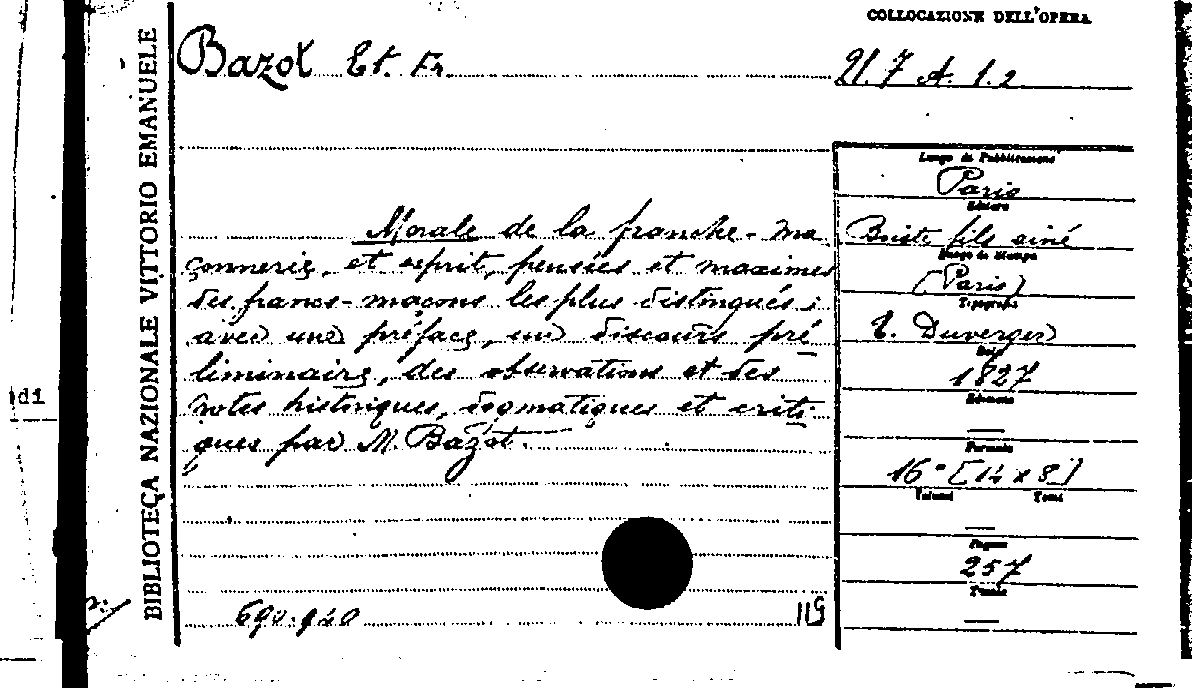 COLLOCAZIONE DELL'OPERA
Bazot Et. Fr.
21. 7 A. 1. 2
BIBLIOTECA NAZIONALE VITTORIO EMANUELE
Morale de la franche-ma
çonnerie, et esprit, pensées et maximes
des francs-maçons les plus distingués;
avec une préface, un discours pré
liminaire, des observations et des
notes historiques, dogmatiques et criti-
ques par M. Bazot.
Luogo di Pubblicazione
Paris
Editore
fils ainé
Luogo di Stampa
(Paris)
Tipografo
E. Duverger
1827
Edizione
—
Formato
16° [14 x 8]
Volumi Tomi
—
Pagine
257
Tavole
—
690.940
115
di